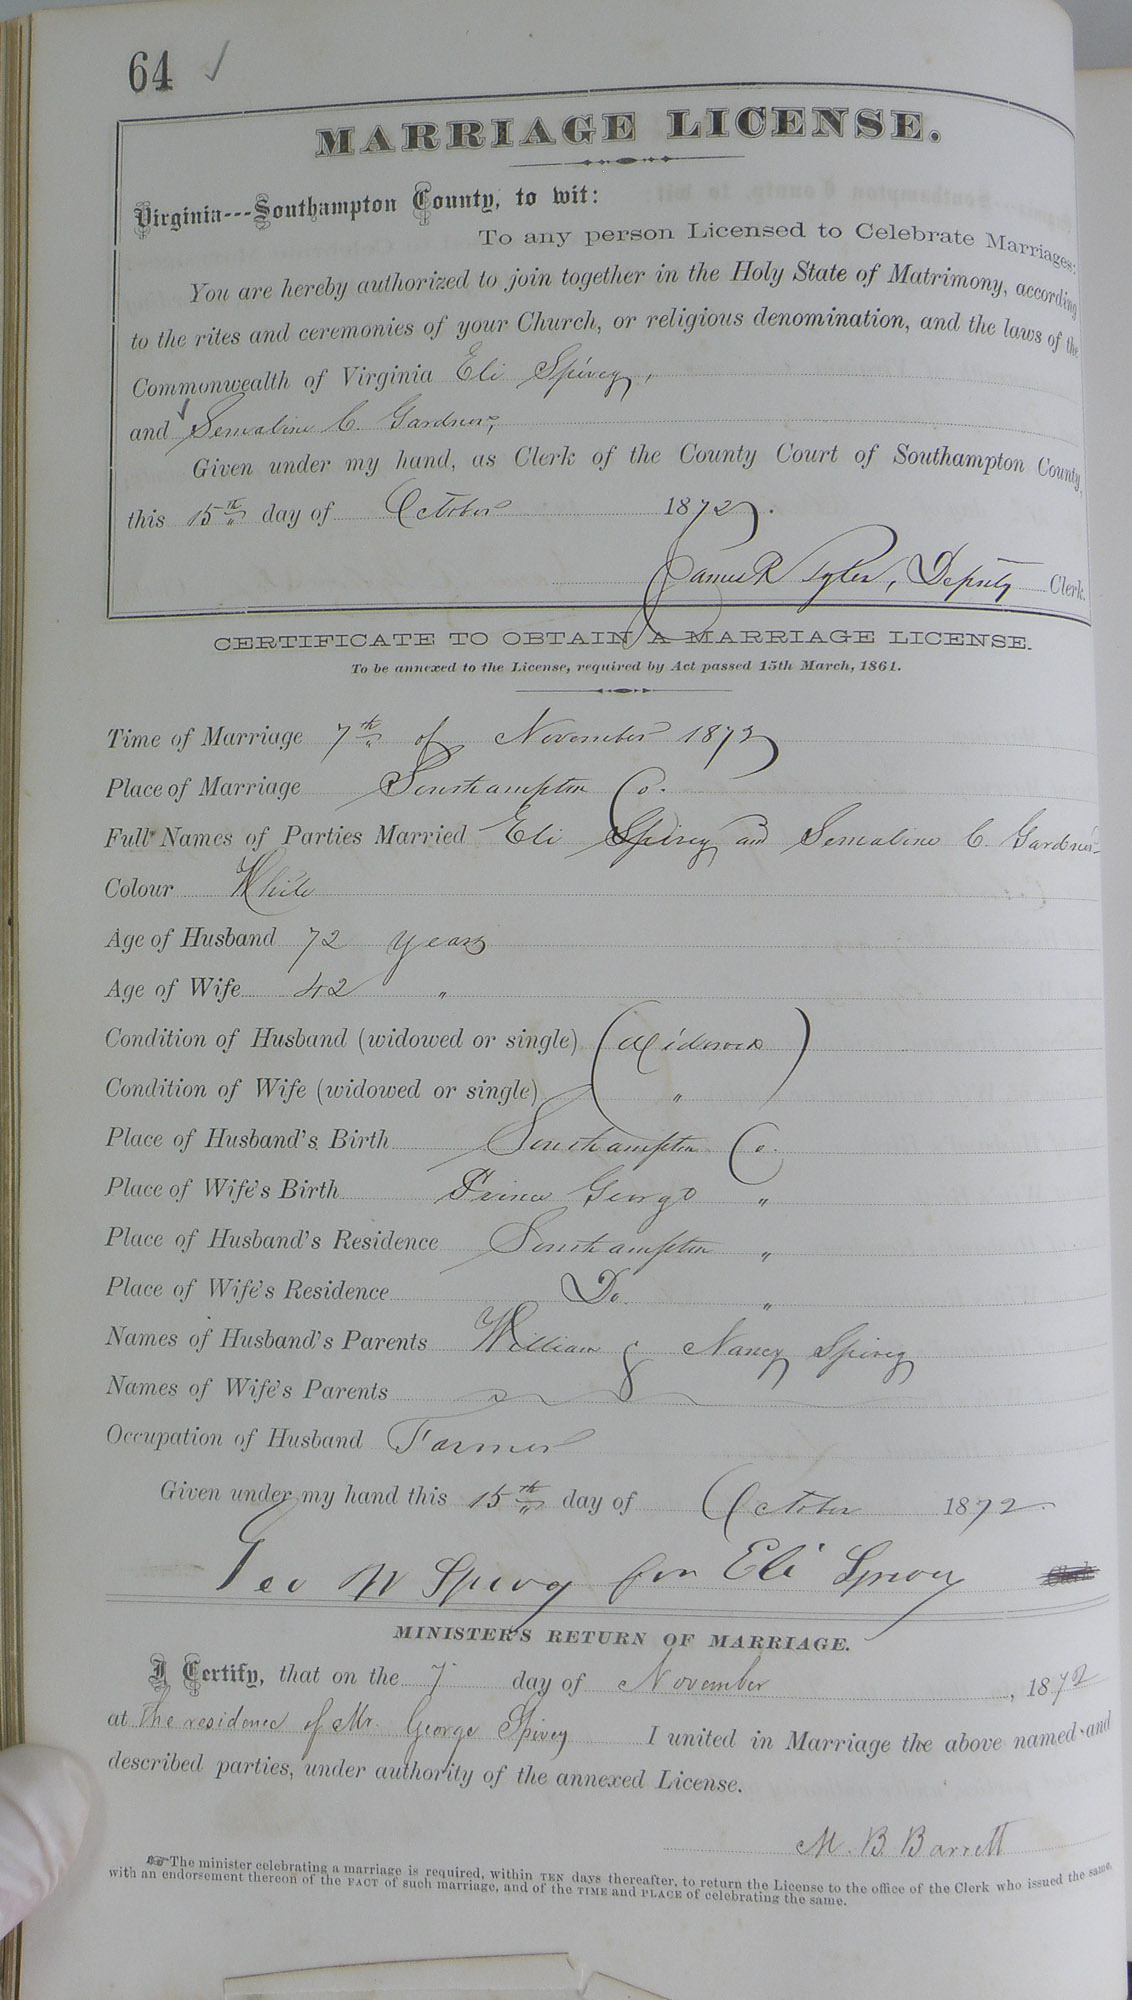 64 ✓
MARRIAGE LICENSE.
Virginia---Southampton County, to wit:
To any person Licensed to Celebrate Marriages:
You are hereby authorized to join together in the Holy State of Matrimony, according
to the rites and ceremonies of your Church, or religious denomination, and the laws of the
Commonwealth of Virginia Eli Spivey,
and Semaline C. Gardner,
Given under my hand, as Clerk of the County Court of Southampton County,
this 15th day of October 1872.
James R Tyler, Deputy Clerk.
CERTIFICATE TO OBTAIN A MARRIAGE LICENSE.
To be annexed to the License, required by Act passed 15th March, 1861.
Time of Marriage 7th of November 1872
Place of Marriage Southampton Co.
Full Names of Parties Married Eli Spivey and Semaline C. Gardner
Colour White
Age of Husband 72 years
Age of Wife 42 "
Condition of Husband (widowed or single) (Widowed)
Condition of Wife (widowed or single) "
Place of Husband's Birth Southampton Co.
Place of Wife's Birth Prince George "
Place of Husband's Residence Southampton "
Place of Wife's Residence Do. "
Names of Husband's Parents William & Nancy Spivey
Names of Wife's Parents
Occupation of Husband Farmer
Given under my hand this 15th day of October 1872.
Geo W Spivey for Eli Spivey Clerk
MINISTER'S RETURN OF MARRIAGE.
I Certify, that on the 7 day of November, 1872
at the residence of Mr. George Spivey I united in Marriage the above named and
described parties, under authority of the annexed License.
M. B. Barrett
☞The minister celebrating a marriage is required, within TEN days thereafter, to return the License to the office of the Clerk who issued the same,
with an endorsement thereon of the FACT of such marriage, and of the TIME and PLACE of celebrating the same.